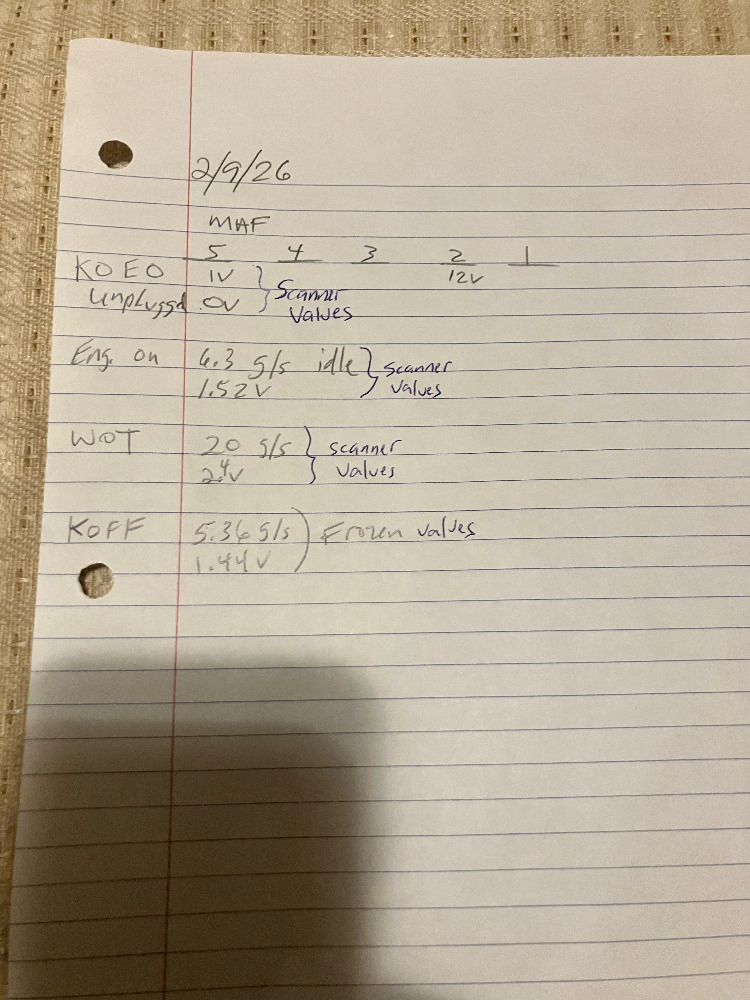 2/9/26
MAF
5 4 3 2 1
KOEO 1V 12V
Unpluggd .0V } Scanner Values
Eng. on 6.3 g/s idle } scanner
1.52V values
WOT 20 g/s } scanner
2.4V values
KOFF 5.36 g/s ) Frozen values
1.44V